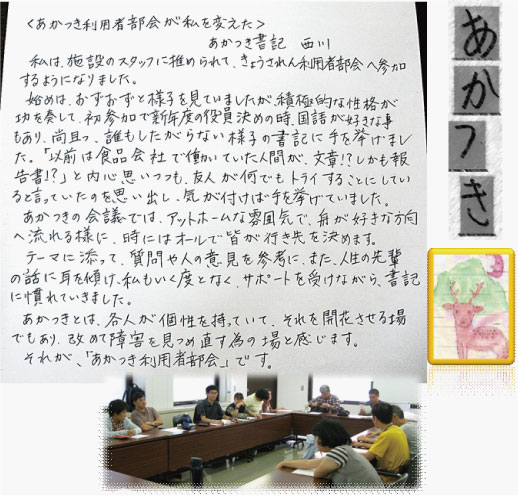 ＜あかつき利用者部会が私を変えた＞
あかつき書記 西川
私は、施設のスタッフに推められて、きょうされん利用者部会へ参加
するようになりました。
始めは、おずおずと様子を見ていましたが、積極的な性格が
功を奏して、初参加で新年度の役員決めの時、国語が好きな事
もあり、尚且つ、誰もしたがらない様子の書記に手を挙げまし
た。「以前は食品会社で働いていた人間が、文章!?しかも報
告書!?」と内心思いつつも、友人が何でもトライすることにしてい
ると言っていたのを思い出し、気が付けば手を挙げていました。
あかつきの会議では、アットホームな雰囲気で、舟が好きな方向
へ流れる様に、時にはオールで皆が行き先を決めます。
テーマに添って、質問や人の意見を参考に、また、人生の先輩
の話に耳を傾け、私もいく度となく、サポートを受けながら、書記
に慣れていきました。
あかつきとは、各人が個性を持っていて、それを開花させる場
でもあり、改めて障害を見つめ直す為の場と感じます。
それが、「あかつき利用者部会」です。
あかつき